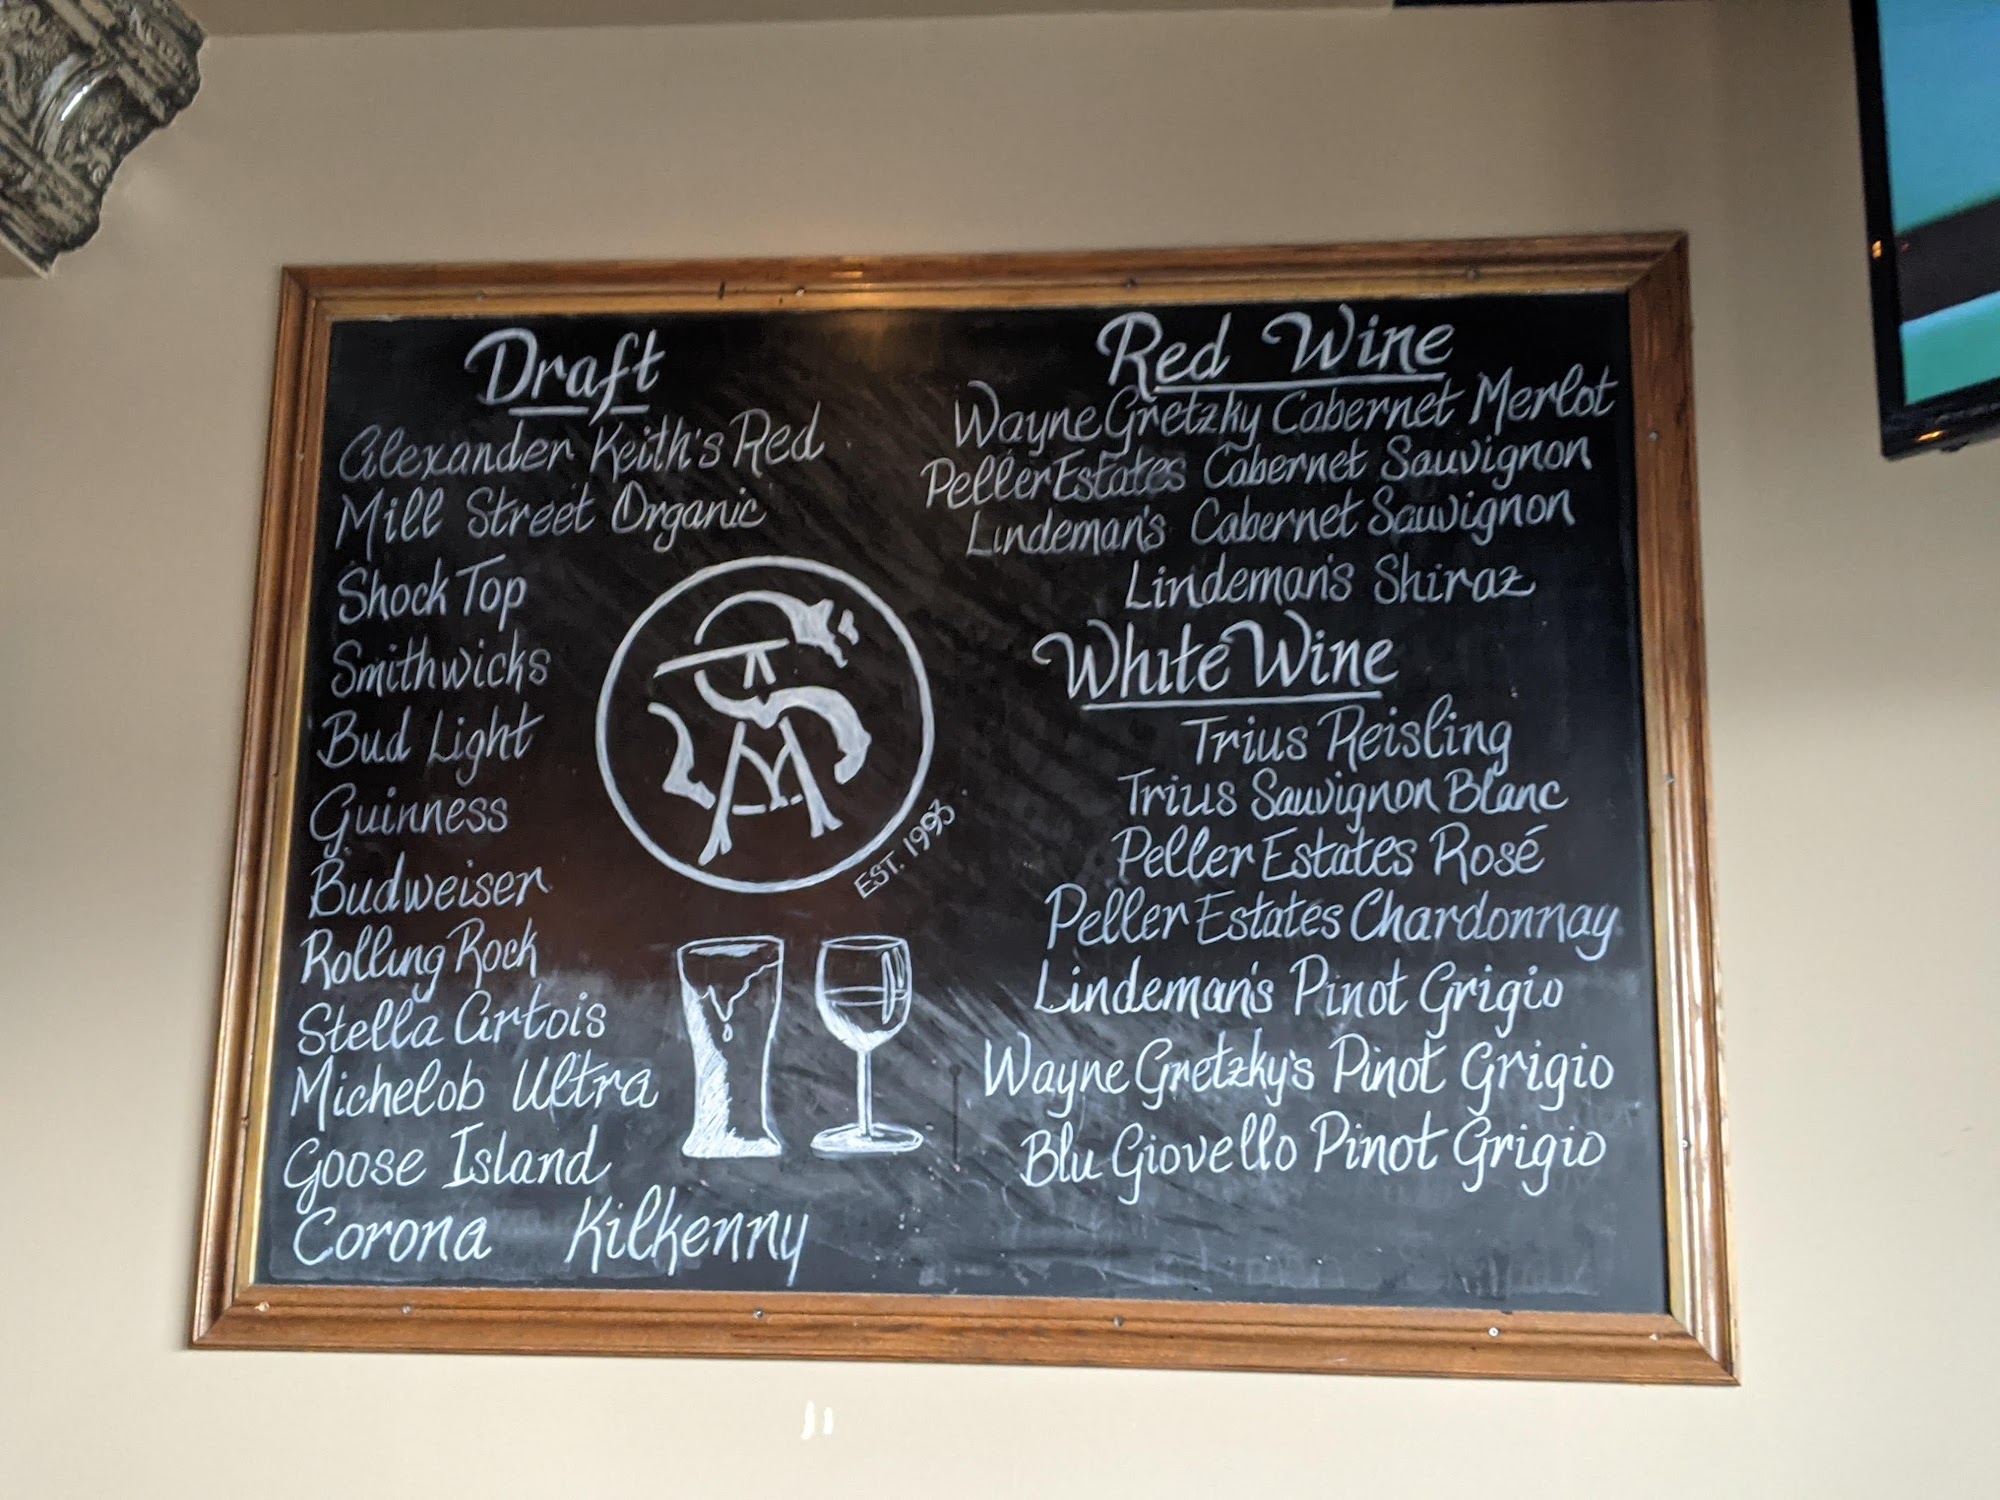 Draft
Alexander Keith's Red
Mill Street Organic
Shock Top
Smithwicks
Bud Light
Guinness
Budweiser
Rolling Rock
Stella Artois
Michelob Ultra
Goose Island
Corona Kilkenny
EST. 1993
Red Wine
Wayne Gretzky Cabernet Merlot
Peller Estates Cabernet Sauvignon
Lindeman's Cabernet Sauvignon
Lindeman's Shiraz
White Wine
Trius Reisling
Trius Sauvignon Blanc
Peller Estates Rosé
Peller Estates Chardonnay
Lindeman's Pinot Grigio
Wayne Gretzky's Pinot Grigio
Blu Giovello Pinot Grigio